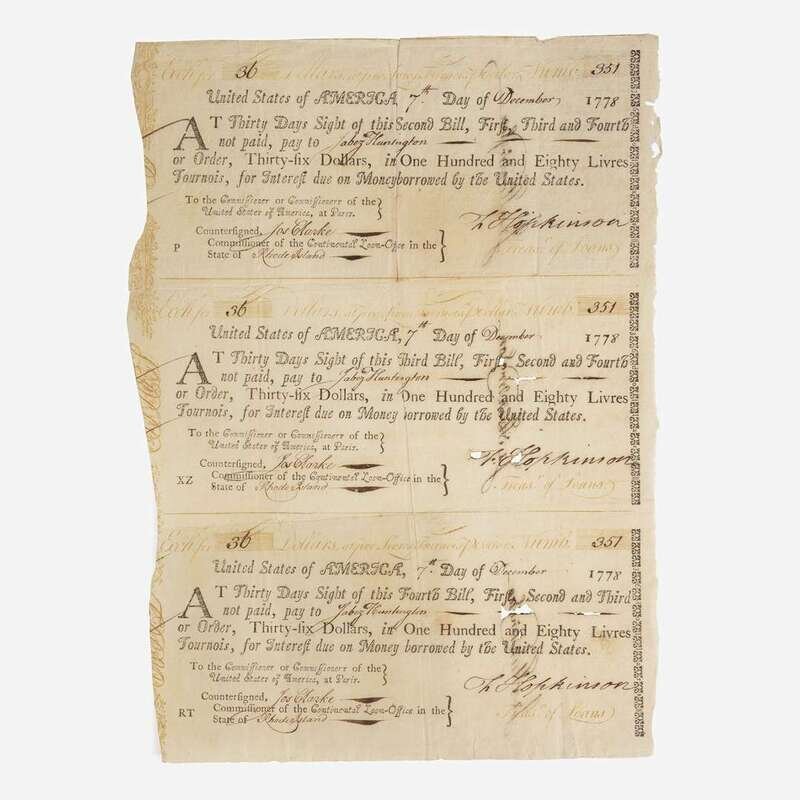 Exch for 36 Dollars, at five Livres Tournois Dollar, Numb. 351
United States of AMERICA, 7th. Day of December 1778
AT Thirty Days Sight of this Second Bill, First, Third and Fourth
not paid, pay to Jabez Huntington
or Order, Thirty-six Dollars, in One Hundred and Eighty Livres
Tournois, for Interest due on Money borrowed by the United States.
To the Commissioner or Commissioners of the
United States of America, at Paris.
Countersigned, Jos Clarke
F Hopkinson
Treasr. of Loans
P Commissioner of the Continental Loan-Office in the
State of Rhode Island
Exch for 36 Dollars, at five Livres Tournois Dollar, Numb. 351
United States of AMERICA, 7th Day of December 1778
AT Thirty Days Sight of this Third Bill, First, Second and Fourth
not paid, pay to Jabez Huntington
or Order, Thirty-six Dollars, in One Hundred and Eighty Livres
Tournois, for Interest due on Money borrowed by the United States.
To the Commissioner or Commissioners of the
United States of America, at Paris.
Countersigned, Jos Clarke
F Hopkinson
Treasr. of Loans
XZ Commissioner of the Continental Loan-Office in the
State of Rhode Island
Exch for 36 Dollars, at five Livres Tournois Dollar, Numb. 351
United States of AMERICA, 7th. Day of December 1778
AT Thirty Days Sight of this Fourth Bill, First, Second and Third
not paid, pay to Jabez Huntington
or Order, Thirty-six Dollars, in One Hundred and Eighty Livres
Tournois, for Interest due on Money borrowed by the United States.
To the Commissioner or Commissioners of the
United States of America, at Paris.
Countersigned, Jos Clarke
F Hopkinson
Treasr. of Loans
RT Commissioner of the Continental Loan-Office in the
State of Rhode Island